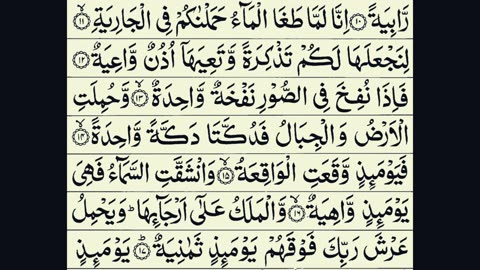 رَّابِيَةً ۝١٠ اِنَّا لَمَّا طَغَا الْمَآءُ حَمَلْنٰكُمْ فِى الْجَارِيَةِ ۝١١
لِنَجْعَلَهَا لَكُمْ تَذْكِرَةً وَّتَعِيَهَآ اُذُنٌ وَّاعِيَةٌ ۝١٢
فَاِذَا نُفِخَ فِى الصُّوْرِ نَفْخَةٌ وَّاحِدَةٌ ۝١٣ وَّحُمِلَتِ
الْاَرْضُ وَالْجِبَالُ فَدُكَّتَا دَكَّةً وَّاحِدَةً ۝١٤
فَيَوْمَئِذٍ وَّقَعَتِ الْوَاقِعَةُ ۝١٥ وَانْشَقَّتِ السَّمَآءُ فَهِىَ
يَوْمَئِذٍ وَّاهِيَةٌ ۝١٦ وَّالْمَلَكُ عَلٰٓى اَرْجَآئِهَا ؕ وَيَحْمِلُ
عَرْشَ رَبِّكَ فَوْقَهُمْ يَوْمَئِذٍ ثَمٰنِيَةٌ ۝١٧ يَوْمَئِذٍ